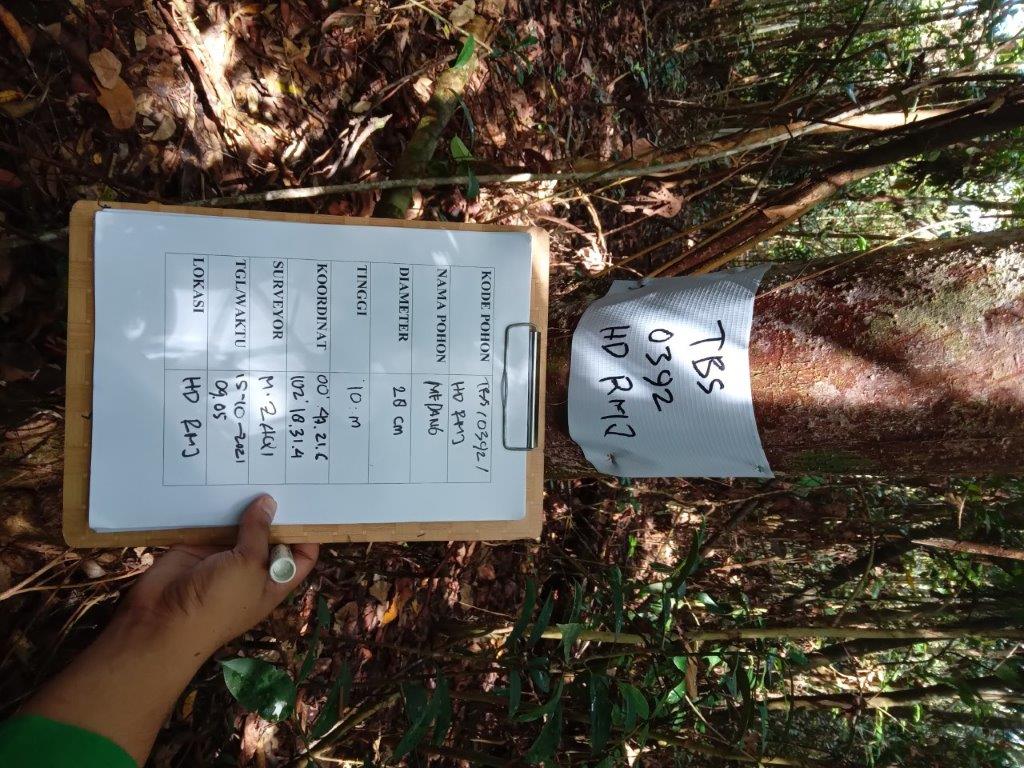 KODE POHON TBS / 0392 /
HD RMJ
NAMA POHON MEDANG
DIAMETER 28 cm
TINGGI 10 : m
KOORDINAT 00° 49. 21. 6
102° 18. 31. 4
SURVEYOR M. ZAQI
TGL/WAKTU 15-10-2021
09.05
LOKASI HD RMJ
TBS
0392
HD RMJ